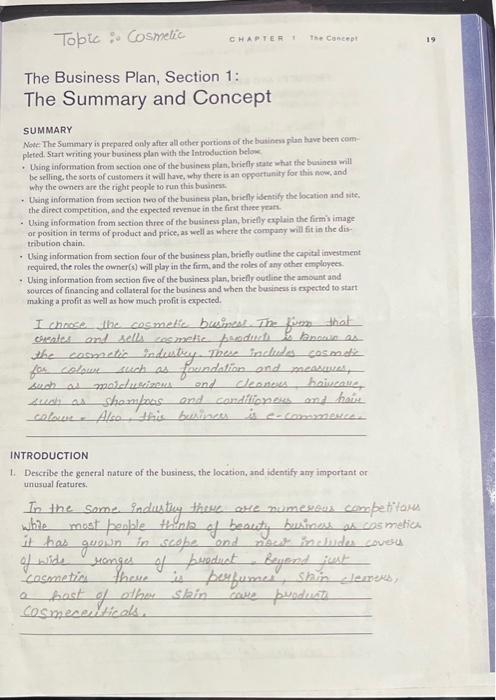 Topic : Cosmetic
CHAPTER 1 The Concept 19
The Business Plan, Section 1:
The Summary and Concept
SUMMARY
Note: The Summary is prepared only after all other portions of the business plan have been com-
pleted. Start writing your business plan with the Introduction below.
• Using information from section one of the business plan, briefly state what the business will
be selling, the sorts of customers it will have, why there is an opportunity for this now, and
why the owners are the right people to run this business.
• Using information from section two of the business plan, briefly identify the location and site,
the direct competition, and the expected revenue in the first three years.
• Using information from section three of the business plan, briefly explain the firm's image
or position in terms of product and price, as well as where the company will fit in the dis-
tribution chain.
• Using information from section four of the business plan, briefly outline the capital investment
required, the roles the owner(s) will play in the firm, and the roles of any other employees.
• Using information from section five of the business plan, briefly outline the amount and
sources of financing and collateral for the business and when the business is expected to start
making a profit as well as how much profit is expected.
I choose the cosmetic business. The firm that
creates and sells cosmetic products is known as
the cosmetic industry. These includes cosmetic
for colour such as foundation and
such as and cleaners, haircare,
such as shampoos and conditioners and hair
colour. Also, this business is e-commerce.
INTRODUCTION
1. Describe the general nature of the business, the location, and identify any important or
unusual features.
In the same industry there are numerous competitors
while most people think of beauty business as cosmetics
it has grown in scope and now includes covers
of wide ranges of product. Beyond just
cosmetics there is perfumes, skin cleaners,
a host of other skin care products
cosmeceuticals.